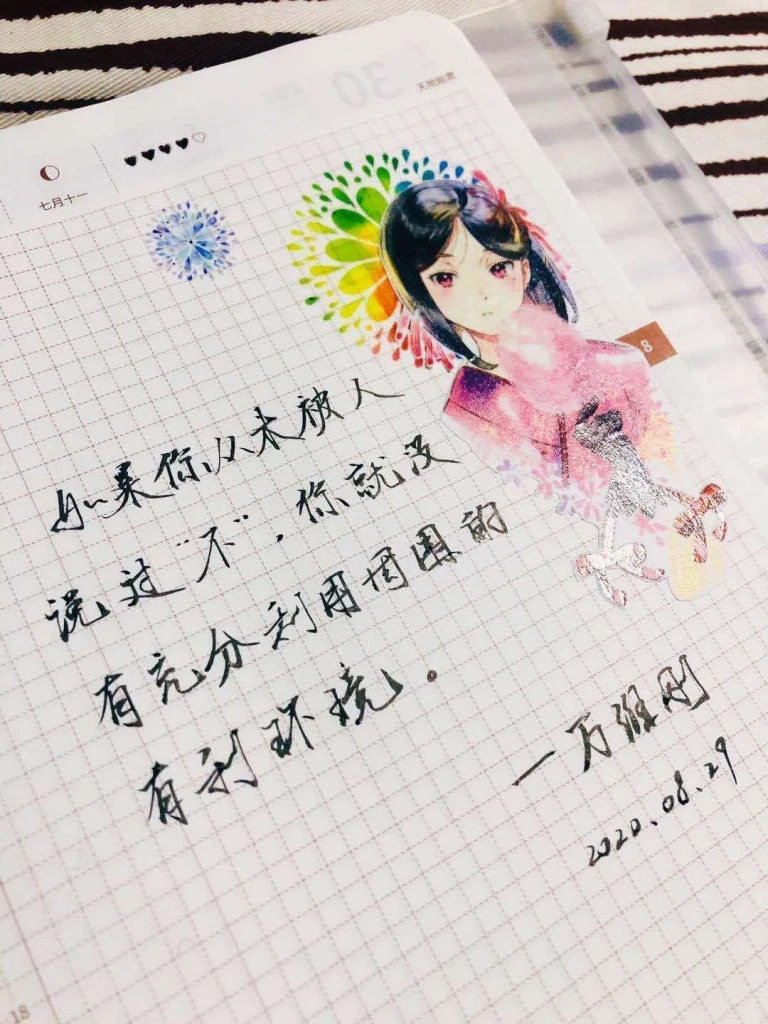 30
天地始肃
七月十一
8
如果你从未被人
说过“不”，你就没
有充分利用周围的
有利环境。
一万维刚
2020.08.29
18